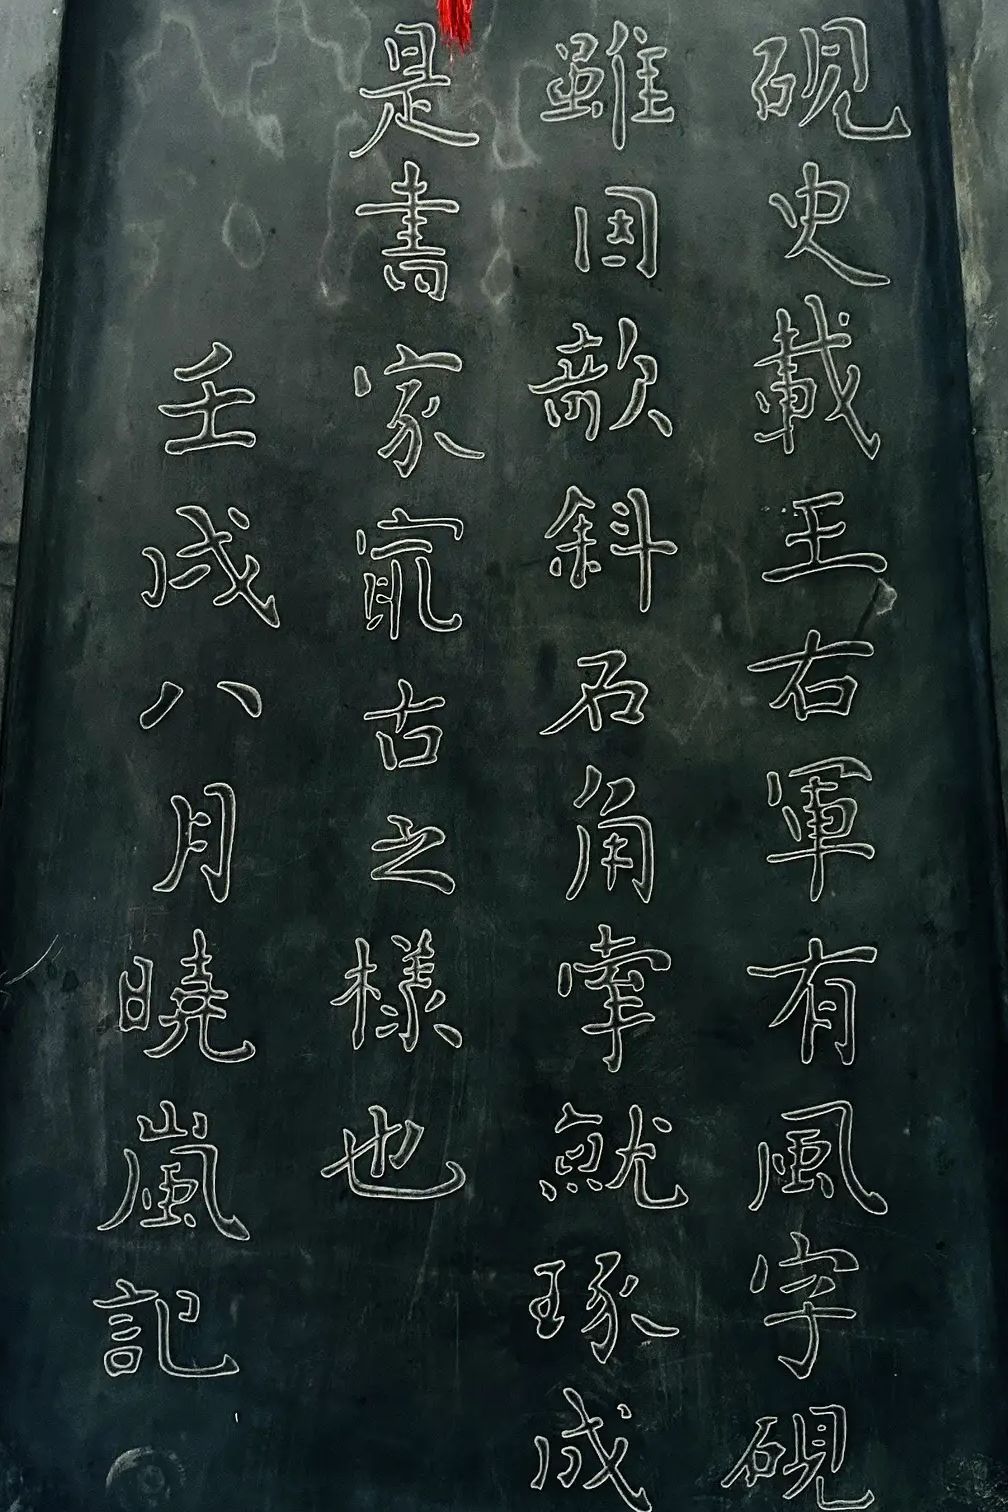 硯史載王右軍有風字硯
雖因欹斜石角牽就琢成
是書家最古之樣也
壬戌八月曉嵐記